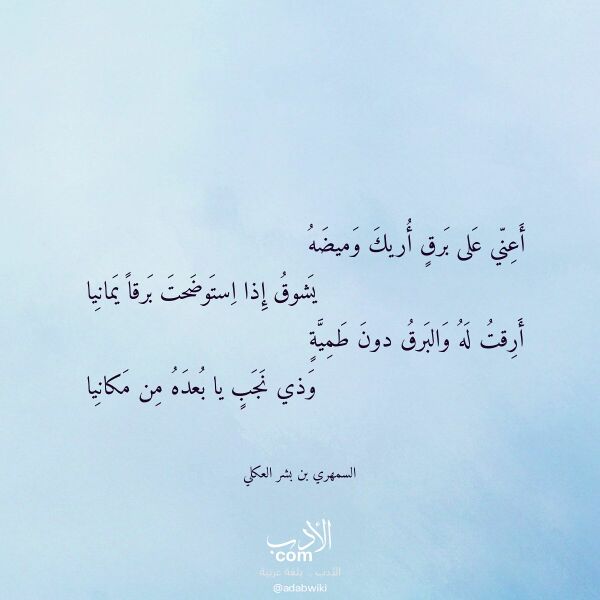 أَعِنّي عَلى بَرقٍ أُريكَ وَميضَهُ
يَشوقُ إِذا اِستَوضَحتَ بَرقاً يَمانِيا
أَرِقتُ لَهُ وَالبَرقُ دونَ طَمِيَّةٍ
وَذي نَجَبٍ يا بُعدَهُ مِن مَكانِيا
السمهري بن بشر العكلي
الأدب
com
الأدب .. بلغة عربية
@adabwiki